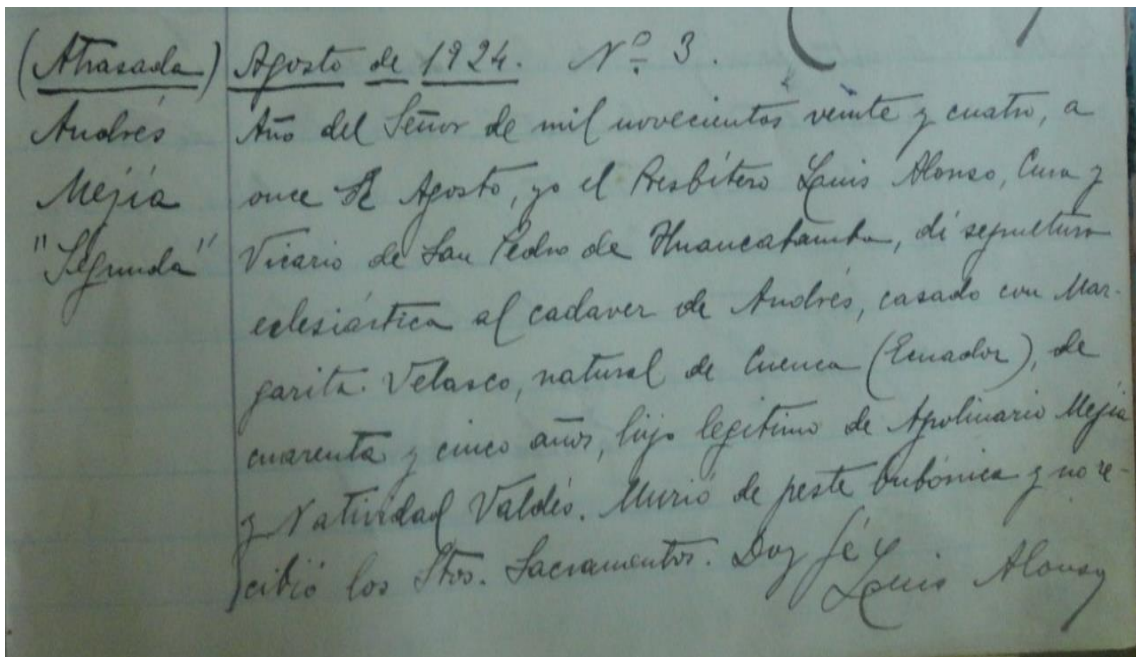 (Atrasada) Agosto de 1924. Nº 3.
Andrés
Mejía
"Segunda"
Año del Señor de mil novecientos veinte y cuatro, a
once de Agosto, yo el Presbítero Luis Alonso, Cura y
Vicario de San Pedro de Huancabamba, di sepultura
eclesiástica al cadaver de Andrés, casado con Mar-
garita Velasco, natural de Cuenca (Ecuador), de
cuarenta y cinco años, hijo legítimo de Apolinario Mejía
y Natividad Valdés. Murió de peste bubónica y no re-
cibió los Stos. Sacramentos. Doy fé
Luis Alonso